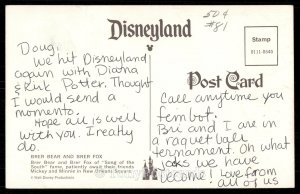 Disneyland
50¢
#81
Stamp
0111-0646
Doug:
We hit Disneyland
again with Diana
& Kirk Potter. Thought
I would send a
momento.
Hope all is well
with you. I really
do.
BRER BEAR AND BRER FOX
Brer Bear and Brer Fox of "Song of the
South" fame, patiently await their friends
Mickey and Minnie in New Orleans Square.
© Walt Disney Productions
Post Card
Call anytime you
Bri and I are in
a raquet ball
ternament. Oh what
we have
become! Love from
all of us